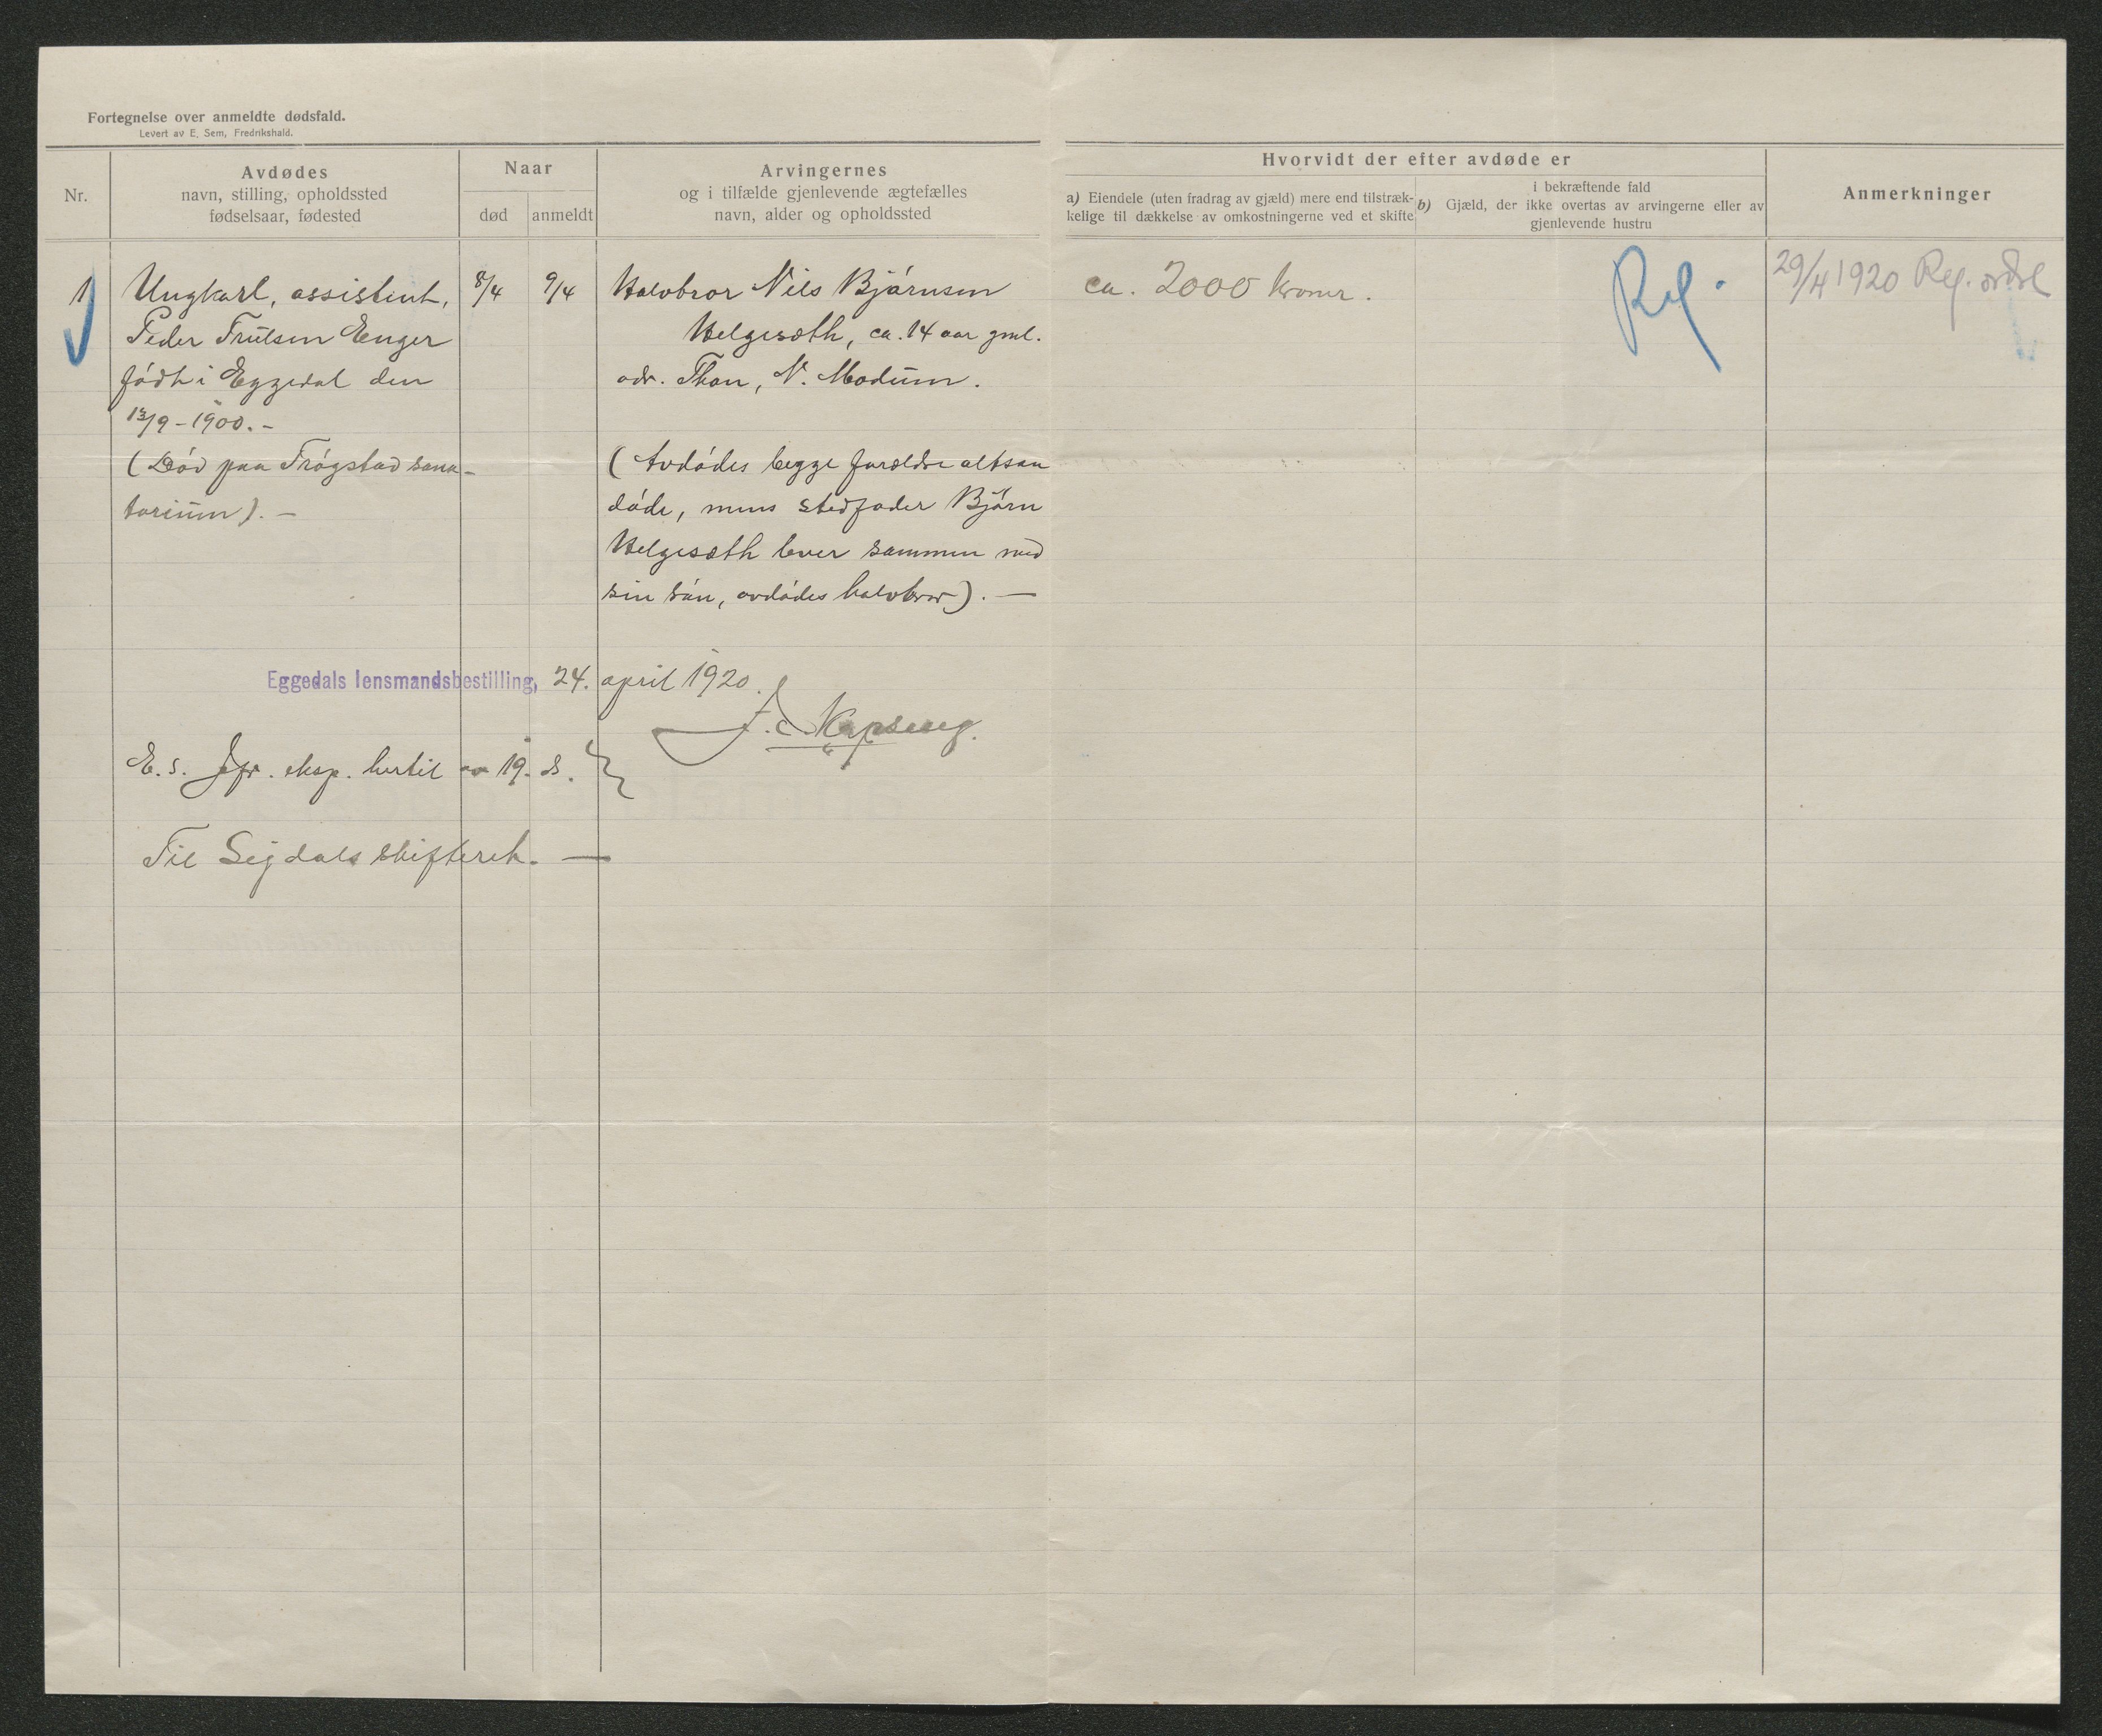 Fortegnelse over anmeldte dødsfald.
Levert av E. Sem, Fredrikshald.
Nr.
Avdødes
navn, stilling, opholdssted
fødselsaar, fødested
Naar
død
anmeldt
Arvingernes
og i tilfælde gjenlevende ægtefælles
navn, alder og opholdssted
Hvorvidt der efter avdøde er
a) Eiendele (uten fradrag av gjæld) mere end tilstræk-
kelige til dækkelse av omkostningerne ved et skifte
i bekræftende fald
b) Gjæld, der ikke overtas av arvingerne eller av
gjenlevende hustru
Anmerkninger
1
Ungkarl, assistent,
Peder Trulsen Enger
født i Eggedal den
13/9-1900.-
(Død paa Trøgstad sana-
torium).-
8/4
9/4
Halvbror Nils Bjørnsen
Helgesæth, ca. 14 aar gml.
adr. Thon, N. Modum.
(Avdødes begge forældre altsaa
døde, mens stedfader Bjørn
Helgesæth lever sammen med
sin søn, avdødes halvbror).-
ca. 2000 kroner.
Reg.
29/4 1920 Reg.
Eggedals lensmandsbestilling, 24. april 1920.
E. s. Jfr. eksp. hertil av 19. ds.
Til Sigdals skifteret.-